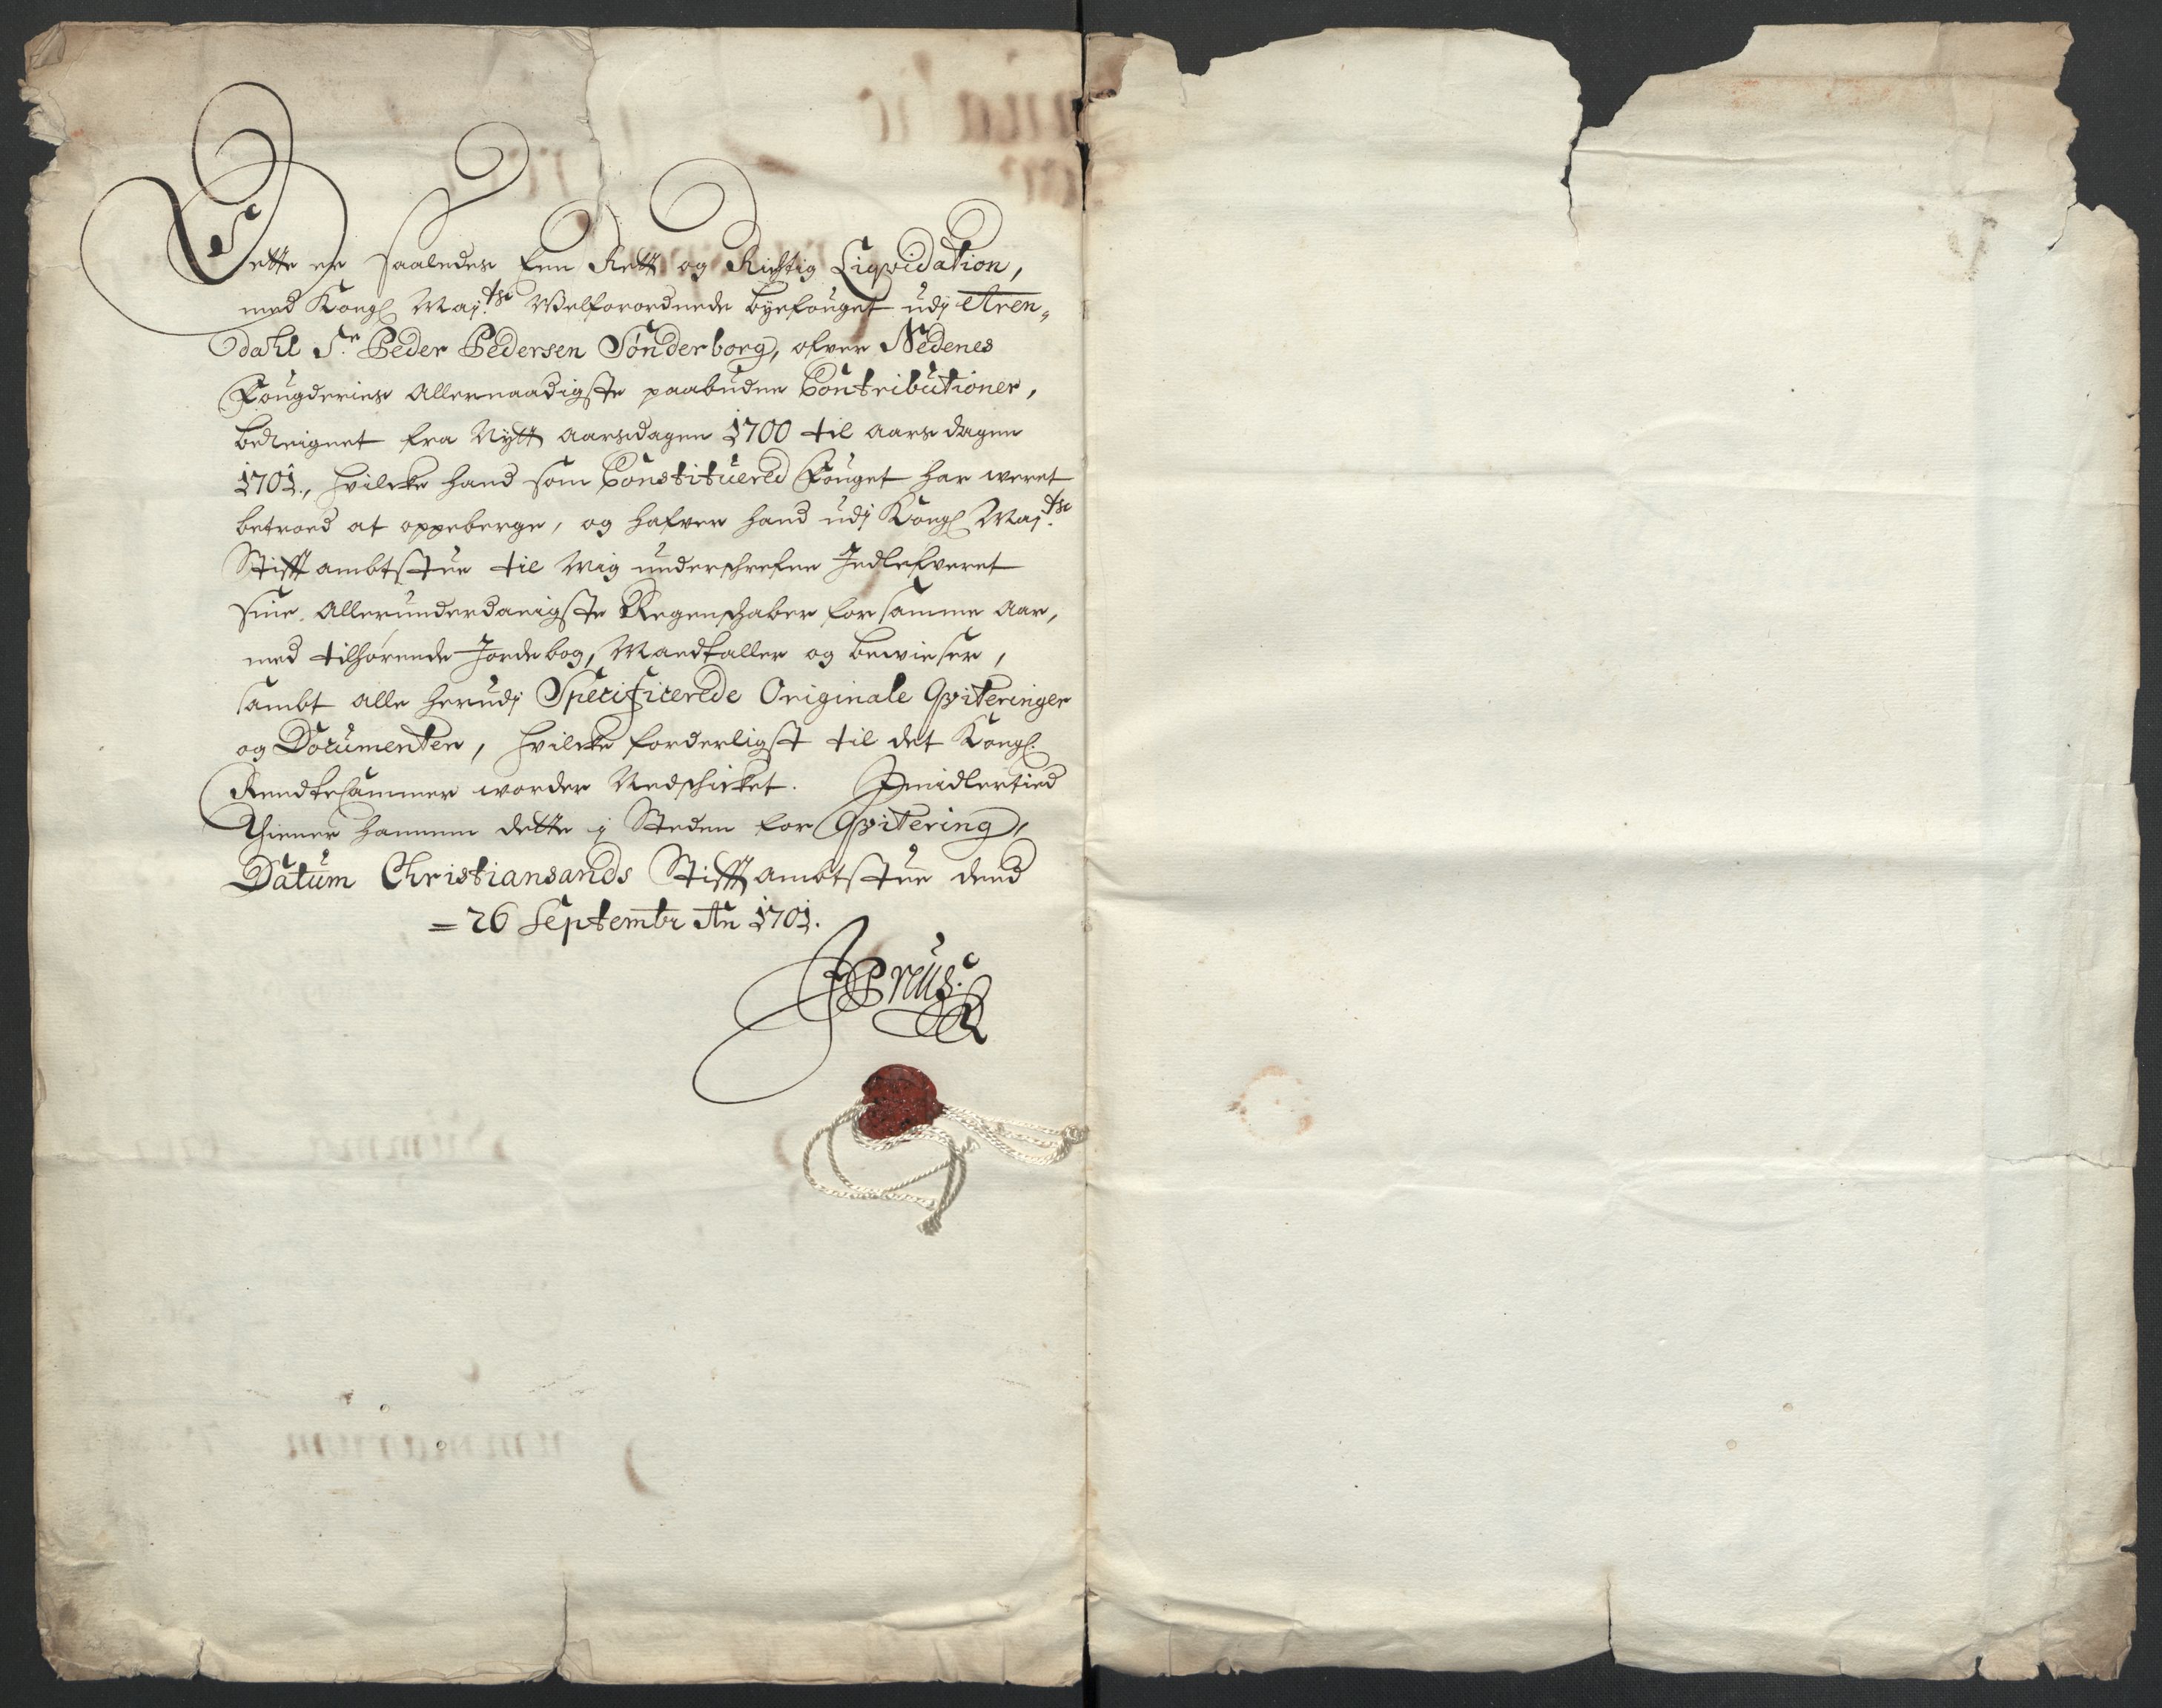 Dette er saaledes Een Rett og Richtig Liqvidation,
med Kongl Maj:ts Welforordnede byefouget udj Aren„
dahl Sr. Peder Pedersen Sønderborg, ofver Nedenes
Fougderies Allernaadigste paabudne Contributioner,
beregnet fra Nytt Aarsdagen 1700 til Aarsdagen
1701, hvilcke hand som Constituered Fouget har weret
betroed at oppeberge, og hafver hand udj Kongl Maj:ts
Stifftambtstue til Mig underschrefne Indlefveret
sine Allerunderdanigste Regenschaber for samme Aar,
med tilhørende Jordebog, Mandtaller og bewieser,
sambt alle herudj Specificerede Originale Qviteringer
og Documenter, hvilcke forderligst til det Kongl.
Rendtekammer worder Nedschicket. Imidlertied
Thiener hannem dette j Steden for Qvitering,
Datum Christiansands Stifftambtstue dend
= 26 Septembr An 1701.
JPreus.